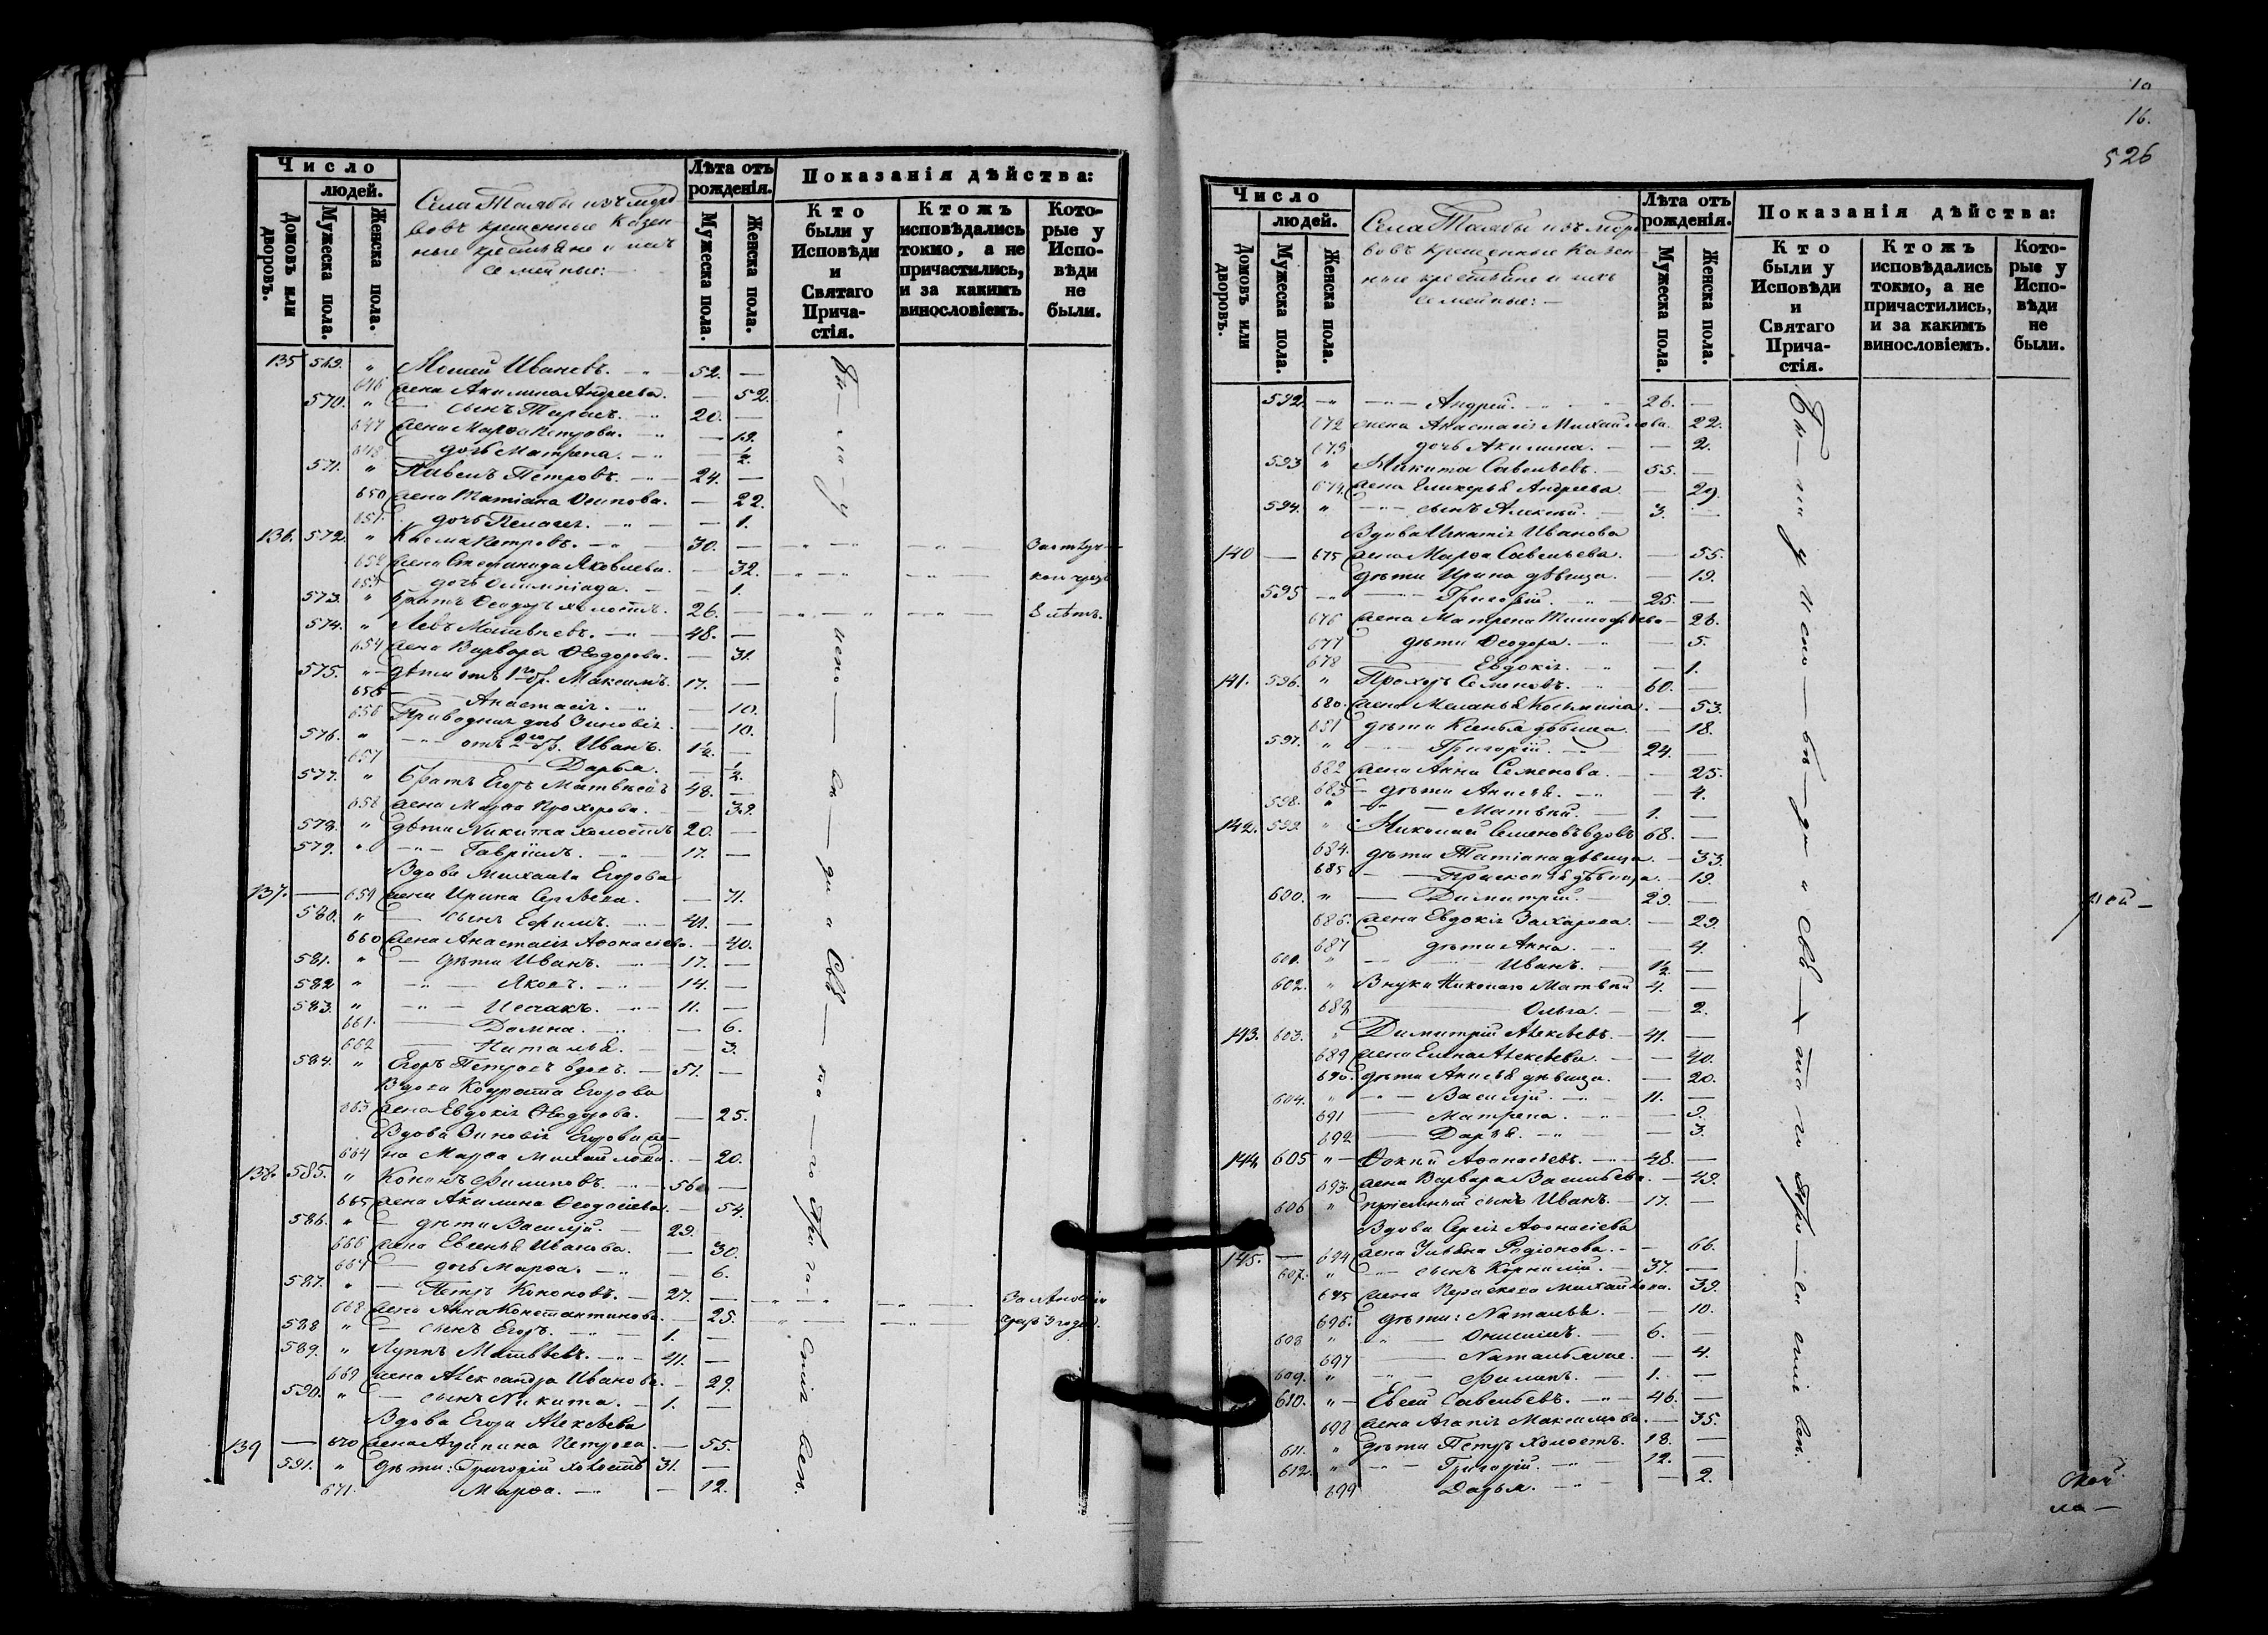 Число
людей.
Домовъ или дворовъ.
Мужеска пола.
Женска пола.
Села изъ морд
вовъ крещенные Казен-
ные крестьяне и ихъ
семейные:
Лѣта отъ рожденія.
Мужеска пола
Женска пола.
Показанія дѣйства:
Кто были у Исповѣди и Святаго Прича-стія.
Ктожъ исповѣдались токмо, а не причастились, и за какимъ винословіемъ.
Кото-рые у Испо-вѣди не были.
135 569. " Ивановъ. 52. —
646 жена Акилина Андреева. — 52.
570. " — сынъ Тарасъ. 20. —
647 жена Марѳа Петрова. — 19.
648 дочь Матрена. — 1/2.
571. " Павелъ Петровъ. 24. —
650 жена Татіана Осипова. — 22.
651. дочь Пелагея. — 1.
136. 572. " Косма Петровъ. 30. —
652 жена Стефанида Яковлева. — 32.
653 дочь Олимпіада. — 1.
573. " братъ Ѳеодоръ холостъ. 26. — 8 лѣтъ.
574. " Левъ Матвѣевъ. 48. —
654 жена Варвара Ѳеодорова. — 31.
575. " дѣти отъ 1го бр. Максимъ. 17. —
655 — Анастасія. — 10.
656 Приводная дочь Зиновія — 10.
576. " отъ 2го бр. Иванъ. 1 1/2. —
657 Дарья. — 1/2.
577. " братъ Егоръ Матвѣевъ 48. —
658 жена Марѳа Прохорова. — 39.
578. " дѣти Никита холостъ 20. —
579. " Гавріилъ. 17. —
Вдова Михаила Егорова
137. — 659 жена Ирина Сергѣева. — 71.
580. " — сынъ Ефимъ. 41. —
660 жена Анастасія Аѳонасіева. — 40.
581. " — дѣти Иванъ. 17. —
582 " — Яковъ. 14. —
583. " — Исаакъ. 11. —
661. Домна. — 6.
662 Наталья. — 3.
584. " Егоръ Петровъ вдовъ. 51. —
Вдова Кодрата Егорова
663 жена Евдокія Ѳеодорова. — 25.
Вдова Зиновія Егорова же-
664 на Марѳа Михайлова. — 20.
138. 585. " Кононъ Филиповъ. 56 —
665 жена Акилина Ѳеодосіева. — 54.
586. " — дѣти Василій. 29. —
666 жена Евгенья Иванова. — 30.
667 — дочь Марѳа. — 6.
587. " — Петръ Кононовъ. 27. —
668 жена Анна Константинова. — 25. 3 года.
588 " — сынъ Егоръ. 1. —
589. " Луппъ Матвѣевъ. 41. —
669 жена Александра Иванова. — 29.
590. " — сынъ Никита. 1. —
Вдова Егора Алексѣева
139 — 670 жена Агрипина Петрова — 55.
591. " дѣти: Григорій холостъ 31. —
671. Марѳа. — 12.
16.
526
Число
людей.
Домовъ или дворовъ.
Мужеска пола.
Женска пола.
Села изъ мор
вовъ крещенные Казен-
ные крестьяне и ихъ
семейные:
Лѣта отъ рожденія.
Мужеска пола.
Женска пола.
Показанія дѣйства:
Кто были у Исповѣди и Святаго Прича-стія.
Ктожъ исповѣдались токмо, а не причастились, и за какимъ винословіемъ.
Кото-рые у Испо-вѣди не были.
592. — Андрей. 26. —
672 жена Анастасія Михайлова. 22.
673 дочь Акилина. — 2.
593 " Никита Савельевъ. 55. —
674. жена Гликерья Андреева. — 29.
594. " — сынъ Алексѣй. 3. —
Вдова Игнатія Иванова
140 — 675 жена Марѳа Савельева. — 55.
дѣти Ирина дѣвица. — 19.
595 " Григорій. 25. —
676 жена Матрена Тимоѳѣева — 28.
677 дѣти Ѳеодора. — 5.
678 Евдокія. — 1.
141. 596. " Прохоръ Семеновъ. 60. —
680. жена Меланья Космина. — 53.
681 дѣти Ксенья дѣвица. — 18.
597. " Григорій. 24. —
682 жена Анна Семенова. — 25.
683 — дѣти Анисья. — 4.
598. " Матвѣй. 1. —
142. 599. " Николай Семеновъ вдовъ 68. —
684. дѣти Татіана дѣвица. — 33.
685 Прасковья дѣвица. — 19.
600. " — Димитрій. 29. —
686. жена Евдокія Захарова. — 29.
687 дѣти Анна. — 4.
601. " Иванъ. 1/2. —
602. " Внуки Николаго Матвѣй 4. —
Ольга. — 2.
143. 603. " Димитрій Алексѣевъ. 41. —
689 жена Елена Алексѣева. — 40.
690. дѣти Анисья дѣвица. — 20.
604. " — Василій. 11. —
691 — Матрена. — 9.
692 — Дарья. — 3.
144 605 " Ѳокій Аѳонасіевъ. 48. —
693. жена Варвара Васильева. — 49.
606 " пріемный сынъ Иванъ. 17. —
Вдова Сергія Аѳонасіева
145. — 694 жена Ульяна Родіонова. — 66.
607. " — сынъ Корнилій. 37. —
695 жена Параскева Михайлова. 39.
696. дѣти: Наталья. — 10.
608 " Онисимъ. 6. —
697 Наталья же. — 4.
609. " Филипъ. 1. —
610. " Евсей Савельевъ. 46. —
698 жена Агапія Максимова. — 35.
611. " дѣти Петръ холостъ. 18. —
612. " — Григорій. 12. —
699 Дарья. — 2.